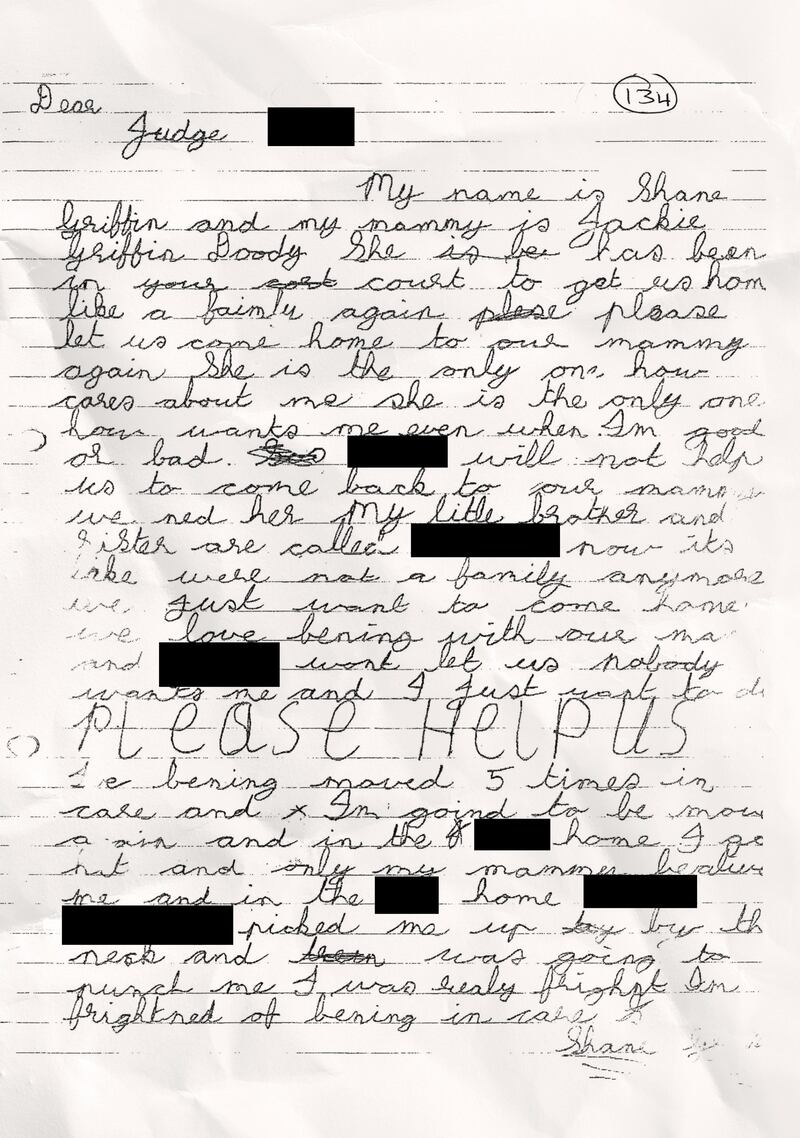 134
Dear
Judge
My name is Shane
Griffin and my mammy is Jackie
Griffin Doody She is be has been
in your cort court to get us hom
like a faimly again plese please
let us come home to our mammy
again She is the only one how
cares about me she is the only one
how wants me even when Im good
or bad. will not help
us to come back to our mammy
we ned her My litle brother and
sister are called now its
like were not a family anymore
we Just want to come home
we love bening with our ma
and wont let us nobody
wants me and I Just want to di
PLeaSe HelP US
I've bening moved 5 times in
care and x Im going to be mov
a ain and in the home I go
hit and only my mammy
me and in the home
picked me up by by th
neck and was going to
punch me I was realy frighnt Im
frightned of bening in care
Shane